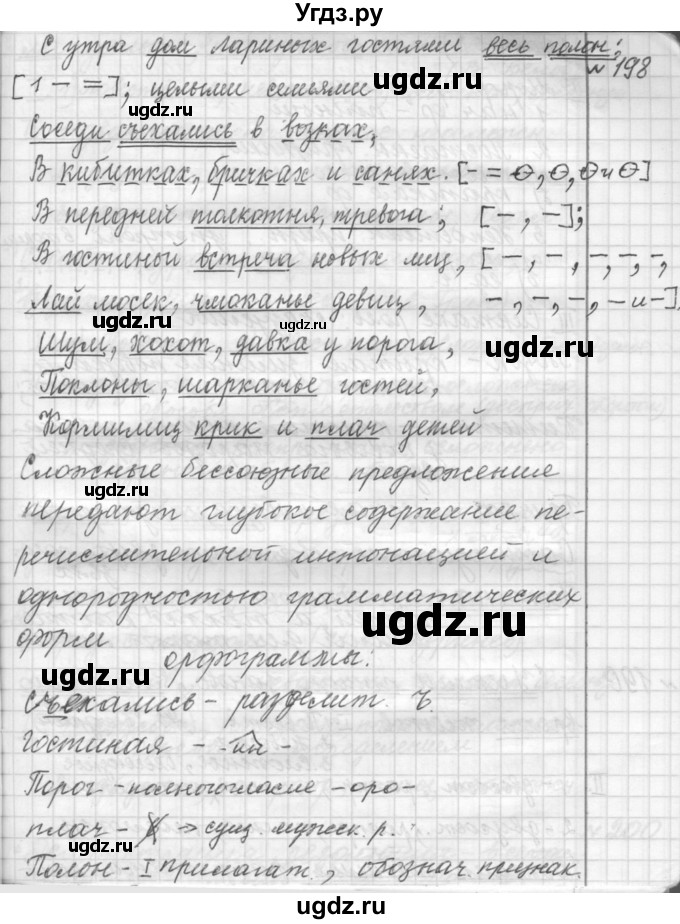 Угдз.ру
С утра дом Лариных гостями весь полон;
№198
[1 – =]; целыми семьями
ugdz.ru
Соседи съехались в возках,
ugdz.ru
В кибитках, бричках и санях. [- = О, О, О и О]
ugdz.ru
В передней толкотня, тревога; [–, –];
В гостиной встреча новых лиц, [–, –, –, –, –,
ugdz.ru
Лай мосек, чмоканье девиц, –, –, –, – и –].
ugdz.ru ugdz.ru
Шум, хохот, давка у порога,
ugdz.ru
Поклоны, шарканье гостей,
ugdz.ru
Кормилиц крик и плач детей
Сложные бессоюзные предложение
ugdz.ru
передают глубокое содержание пе-
речислительной интонацией и
однородностью грамматических
ugdz.ru
форм
орфограммы:
ugdz.ru
съехались – разделит. ъ.
гостиная – -ин-
Порог – полногласие -оро-
плач – ь → сущ. мужск. р.
Полон – I прилагат., обознач. признак.
ugdz.ru